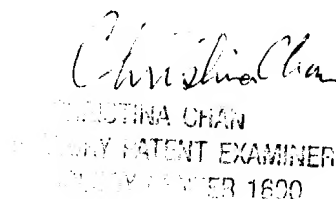 Christina Chan
CHRISTINA CHAN
PATENT EXAMINER
1600